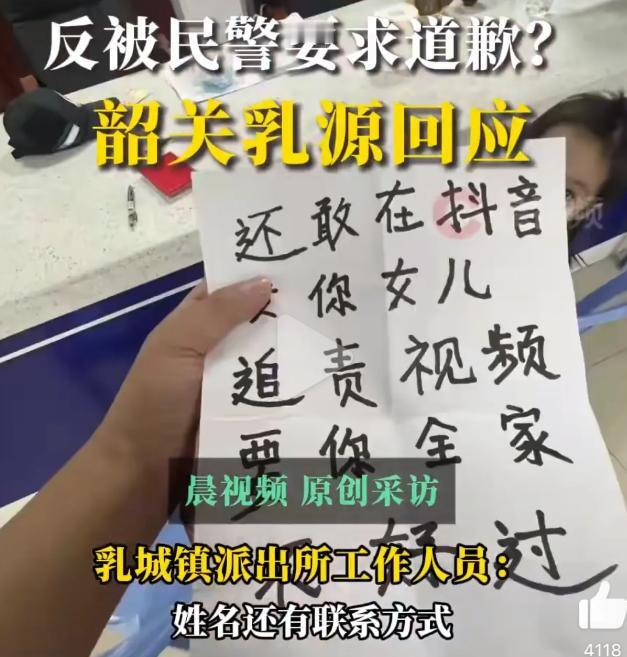 反被民警要求道歉?
韶关乳源回应
还敢在抖音
你女儿
追责视频
要你全家
不好过
晨视频 原创采访
乳城镇派出所工作人员:
姓名还有联系方式
4118